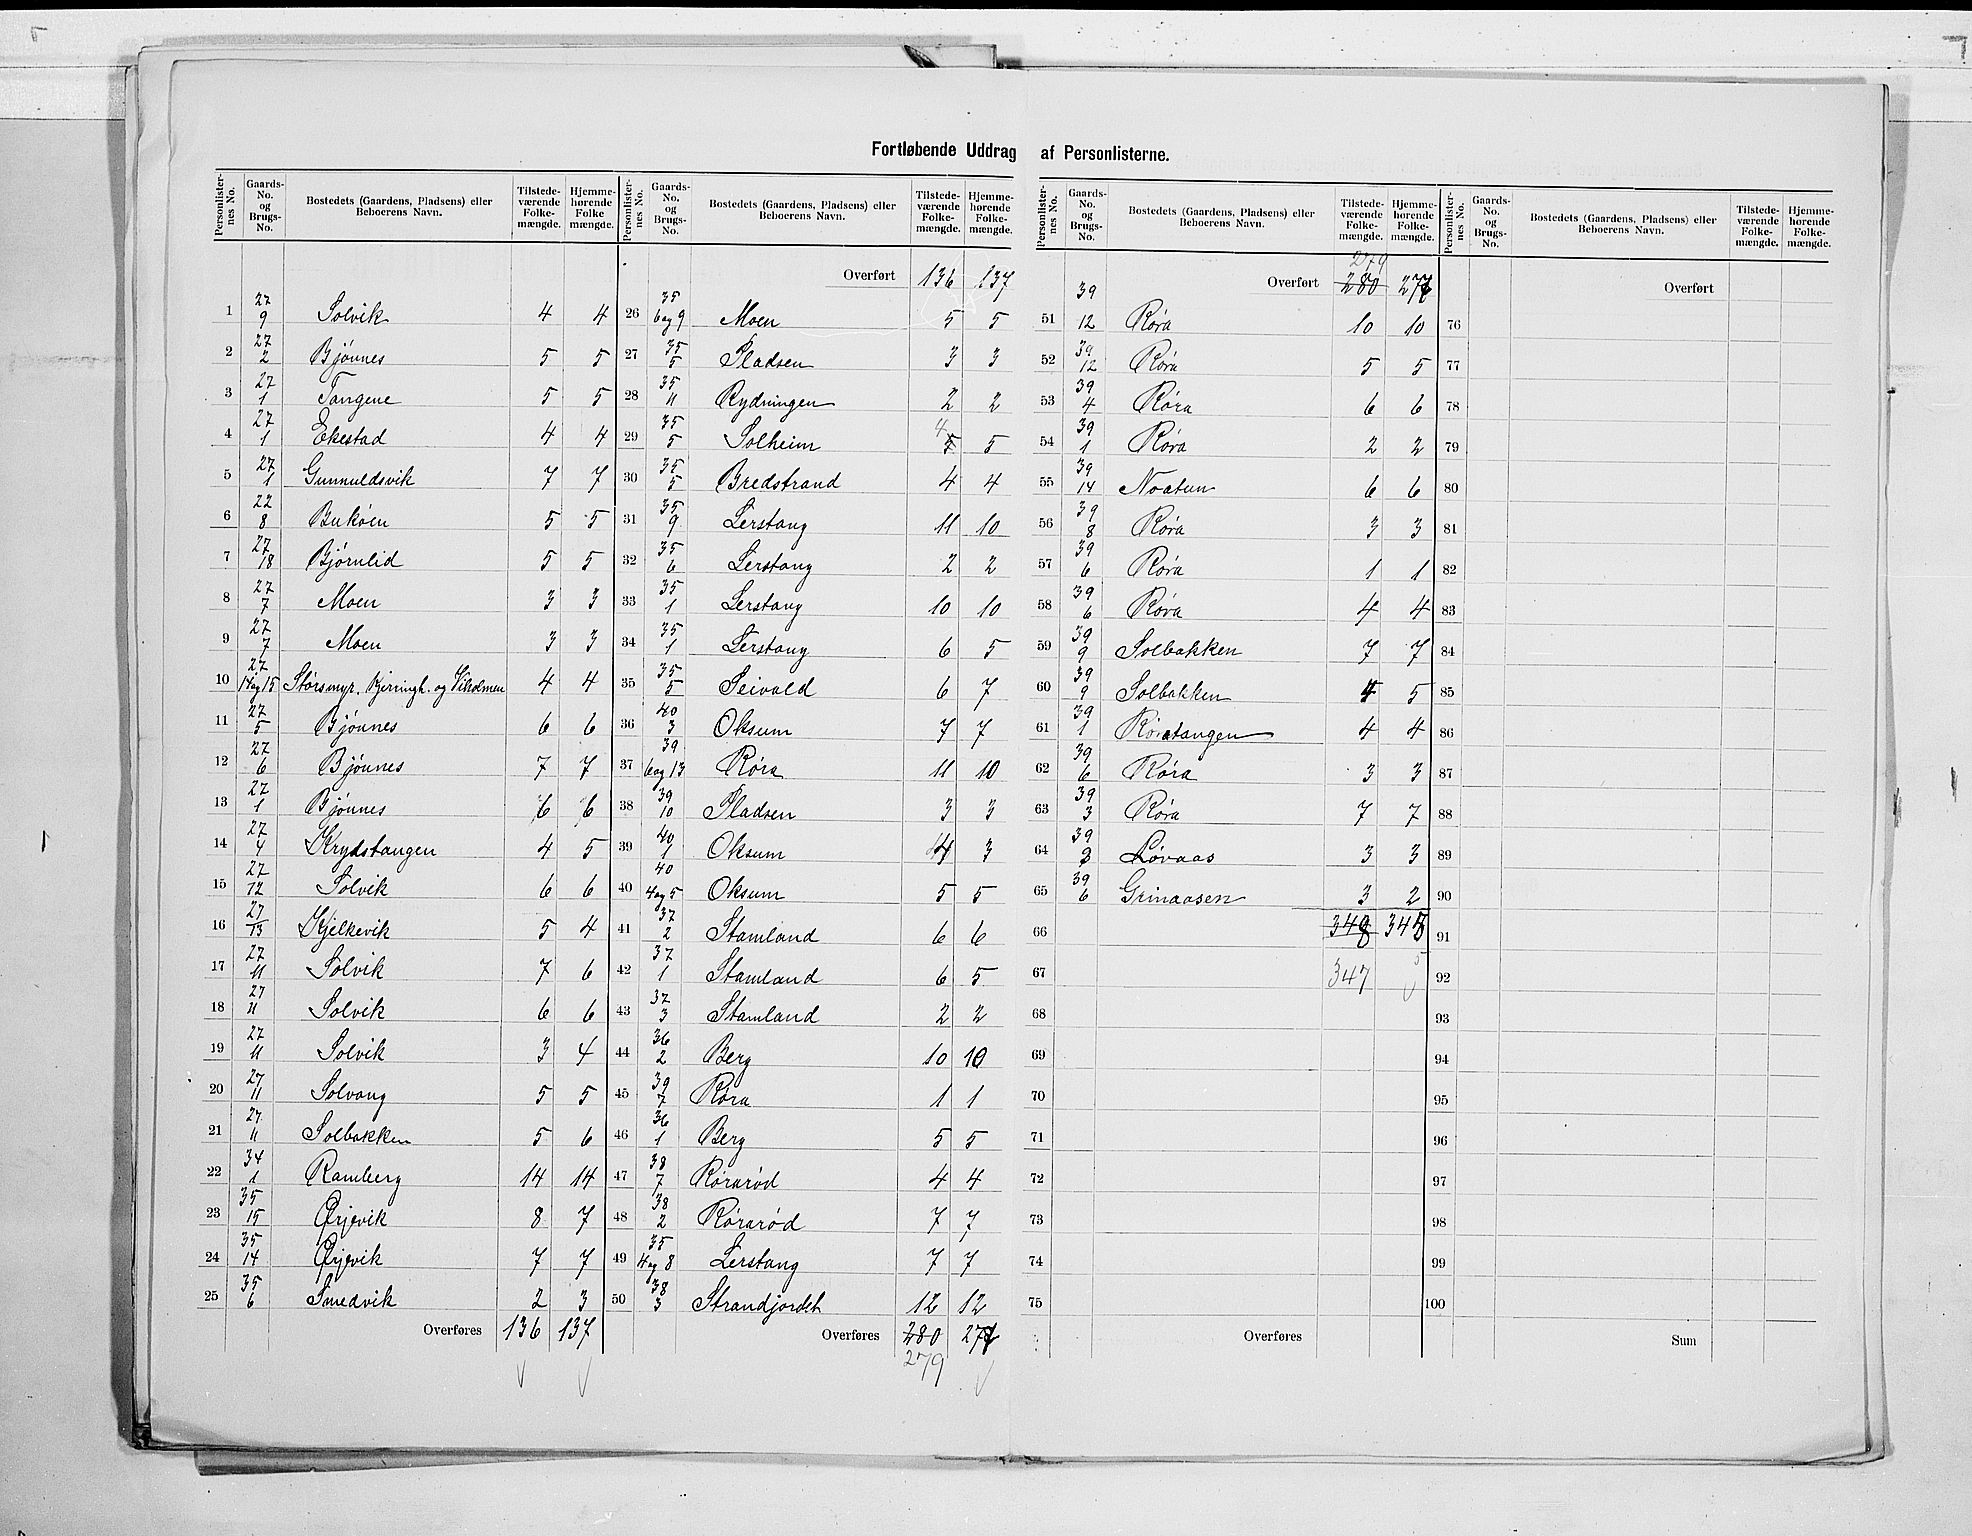 Fortløbende Uddrag af Personlisterne.
Personlister-nes No. Gaards-No. og Brugs-No. Bostedets (Gaardens, Pladsens) eller Beboerens Navn. Tilstede-værende Folke-mængde. Hjemme-hørende Folke mængde.
1 27/9 Solvik 4 4
2 27/2 Bjønnes 5 5
3 27/1 Tangene 5 5
4 27/1 Ekestad 4 4
5 27/1 Gunnuldsvik 7 7
6 22/8 Bukøen 5 5
7 27/18 Bjørnlid 5 5
8 27/7 Moen 3 3
9 27/7 Moen 3 3
10 27/14 og 15 Størsmyr, Kjerringh. og Vikholmen 4 4
11 27/5 Bjønnes 6 6
12 27/6 Bjønnes 7 7
13 27/1 Bjønnes 6 6
14 27/4 Krydstangen 4 5
15 27/12 Solvik 6 6
16 27/13 Kjelkevik 5 4
17 27/11 Solvik 7 6
18 27/11 Solvik 6 6
19 27/11 Solvik 3 4
20 27/11 Solvang 5 5
21 27/11 Solbakken 5 6
22 34/1 Ramberg 14 14
23 35/15 Ørjevik 8 7
24 35/14 Ørjevik 7 7
25 35/6 Smedvik 2 3
Overføres 136 137
Personlister-nes No. Gaards-No. og Brugs-No. Bostedets (Gaardens, Pladsens) eller Beboerens Navn. Tilstede-værende Folke-mængde. Hjemme-hørende Folke-mængde.
Overført 136 137
26 35/6 og 9 Moen 5 5
27 35/5 Pladsen 3 3
28 35/11 Rydningen 2 2
29 35/5 Solheim 4 5 5
30 35/5 Bredstrand 4 4
31 35/9 Lerstang 11 10
32 35/6 Lerstang 2 2
33 35/1 Lerstang 10 10
34 35/1 Lerstang 6 5
35 35/5 Seivald 6 7
36 40/3 Oksum 7 7
37 39/6 og 13 Røra 11 10
38 39/10 Pladsen 3 3
39 40/1 Oksum 4 3
40 40/4 og 5 Oksum 5 5
41 37/2 Stamland 6 6
42 37/1 Stamland 6 5
43 37/3 Stamland 2 2
44 36/2 Berg 10 10
45 39/7 Røra 1 1
46 36/1 Berg 5 5
47 38/7 Rørarød 4 4
48 38/2 Rørarød 7 7
49 35/4 og 8 Lerstang 7 7
50 38/3 Strandjordet 12 12
Overføres 280
279
Personlister-nes No. Gaards-No. og Brugs-No. Bostedets (Gaardens, Pladsens) eller Beboerens Navn. Tilstede-værende Folke-mængde. Hjemme-hørende Folke-mængde.
279
Overført 280
51 39/12 Røra 10 10
52 39/12 Røra 5 5
53 39/4 Røra 6 6
54 39/1 Røra 2 2
55 39/14 Noatun 6 6
56 39/8 Røra 3 3
57 39/6 Røra 1 1
58 39/6 Røra 4 4
59 39/9 Solbakken 7 7
60 39/9 Solbakken 5
61 39/1 Røratangen 4 4
62 39/6 Røra 3 3
63 39/3 Røra 7 7
64 39 Løvaas 3 3
65 39/6 Grinaasen 3 2
66 348
67 347 5
68
69
70
71
72
73
74
75
Overføres
Personlister-nes No. Gaards-No. og Brugs-No. Bostedets (Gaardens, Pladsens) eller Beboerens Navn. Tilstede-værende Folke-mængde. Hjemme-hørende Folke-mængde.
Overført
76
77
78
79
80
81
82
83
84
85
86
87
88
89
90
91
92
93
94
95
96
97
98
99
100
Sum